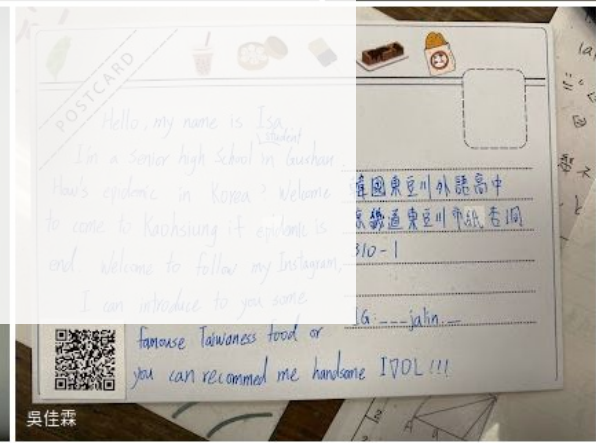 POSTCARD
Hello, my name is Isa.
student
I'm a senior high school in Gushan.
How's epidemic in Korea? Welcome
to come to Kaohsiung if epidemic is
end. Welcome to follow my Instagram,
I can introduce to you some
famouse Taiwaness food or
you can recommed me handsome IDOL!!!
韓國東豆川外語高中
京畿道東豆川市紙杏洞
310-1
IG:___jalin.__
吳佳霖